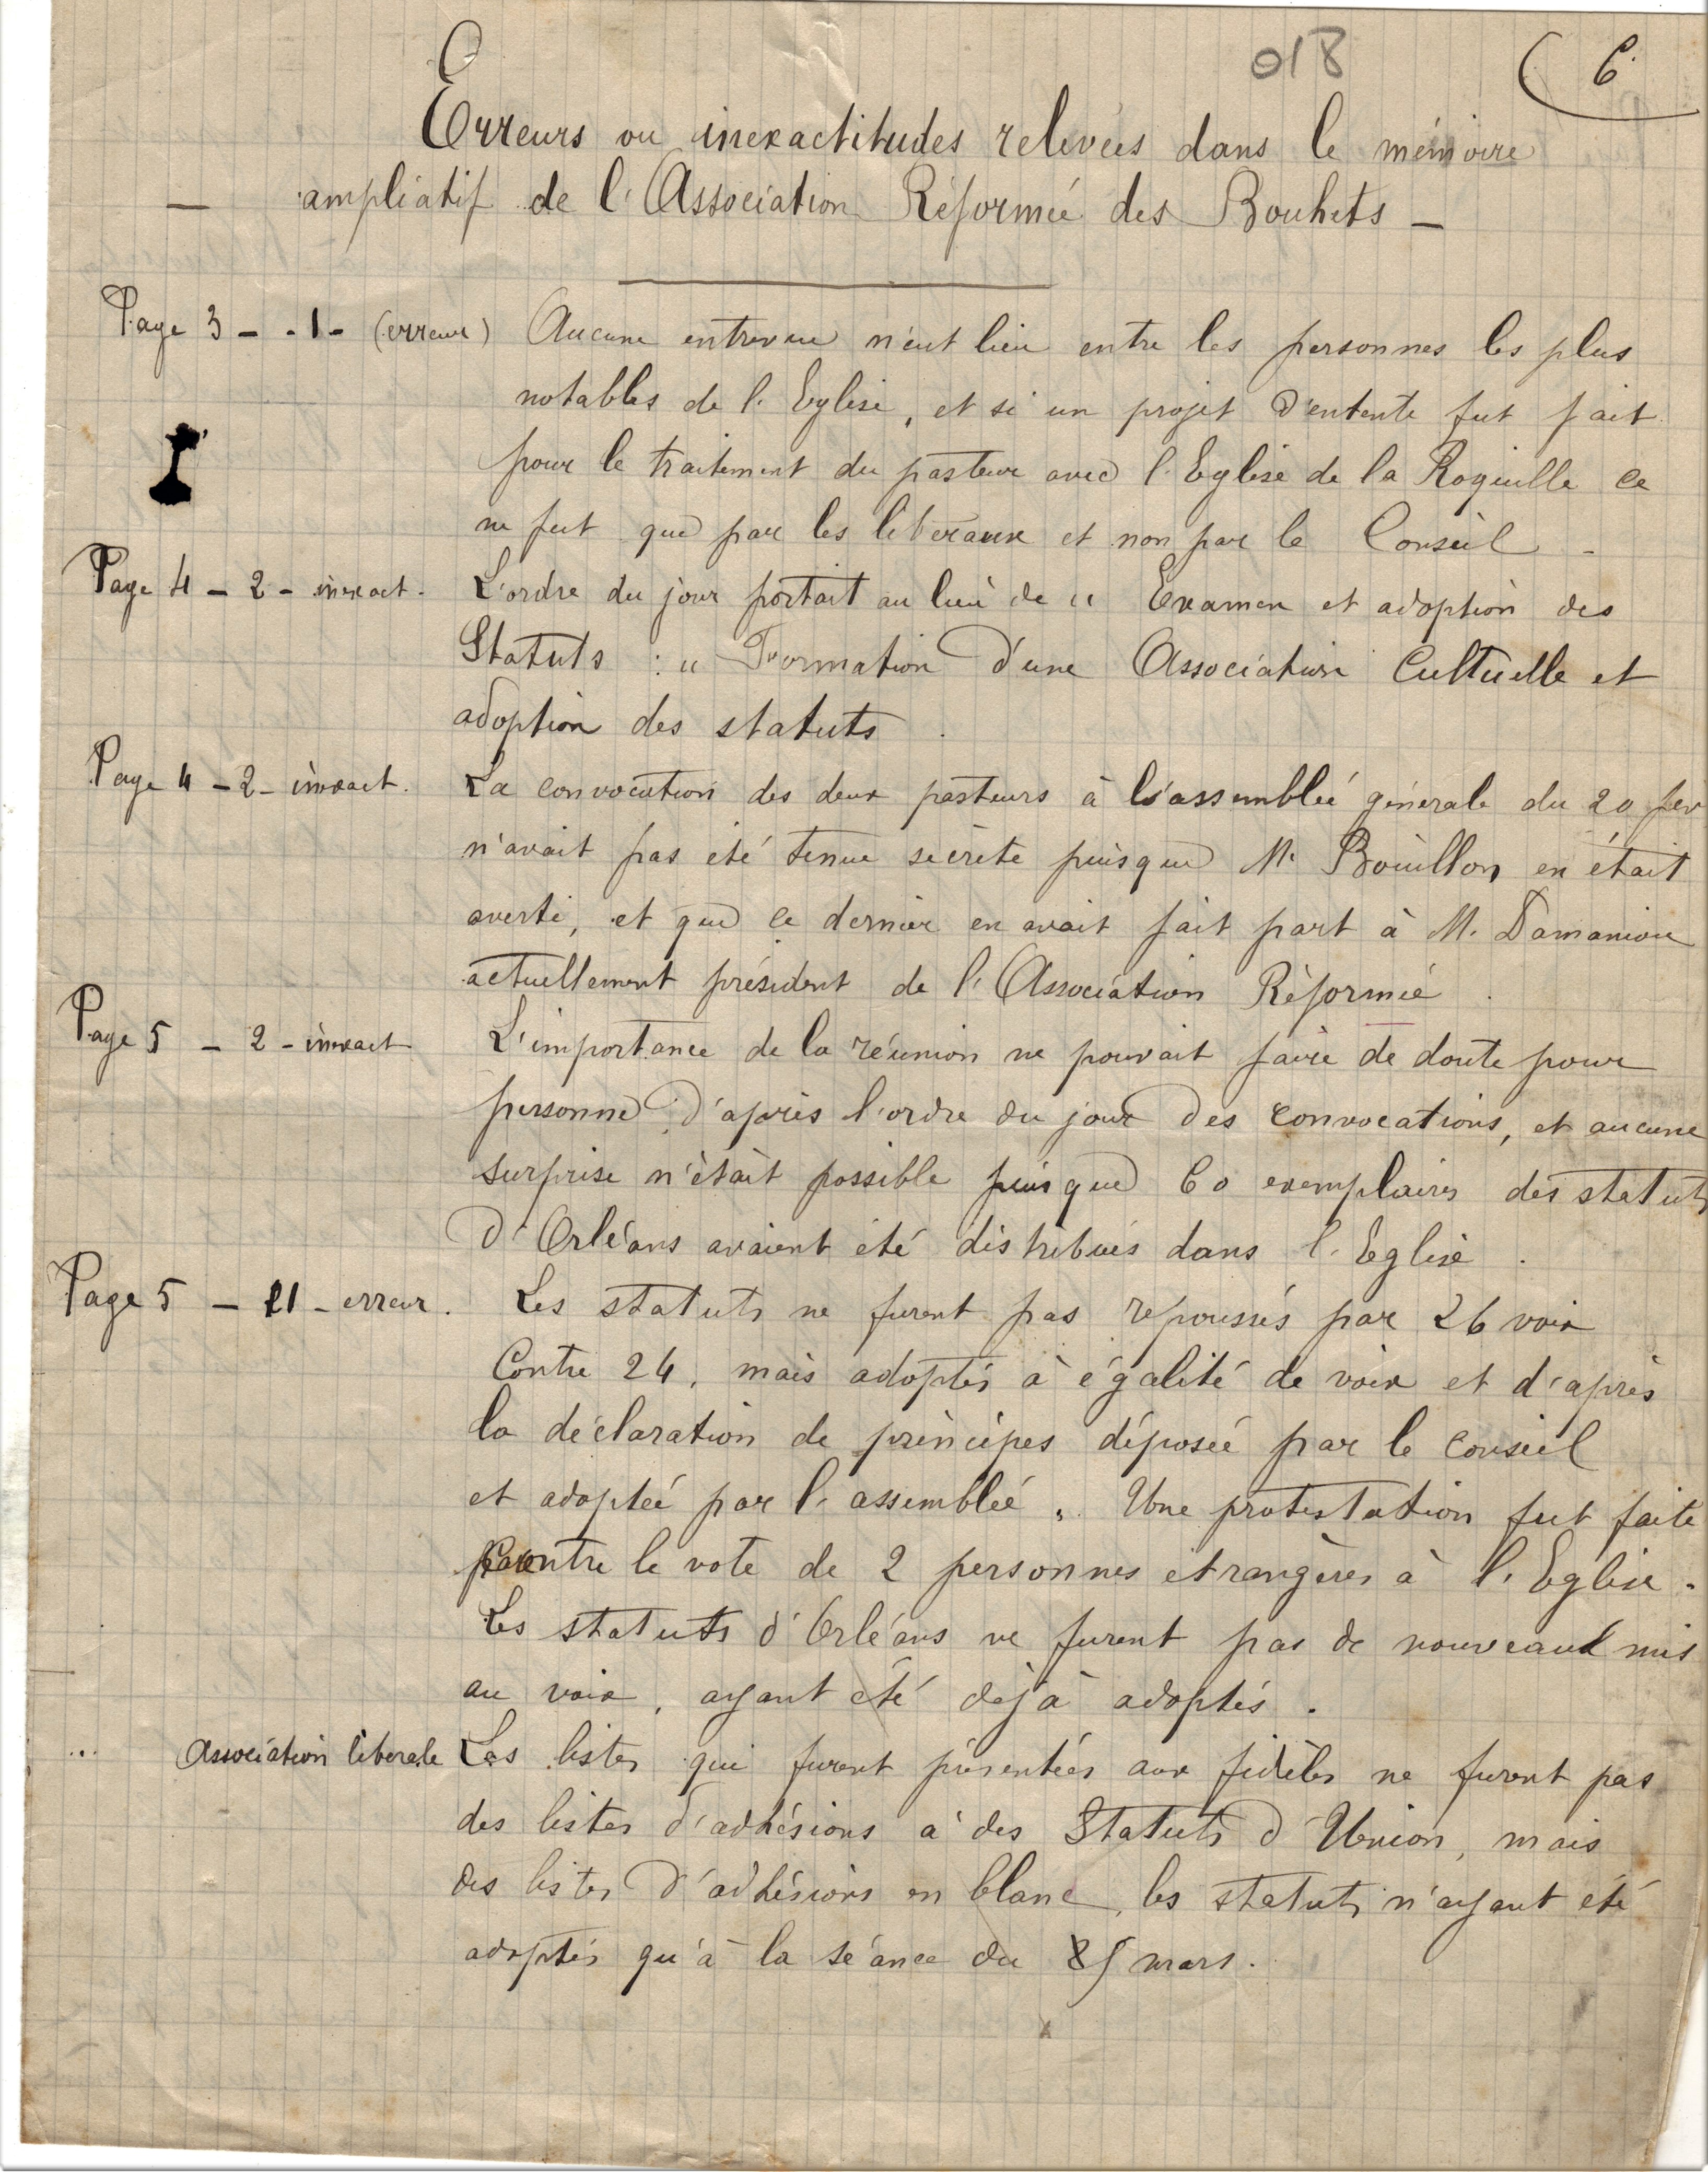 018
6
Erreurs ou inexactitudes relevées dans le mémoire
— ampliatif de l'Association Réformée des Bouhets —
Page 3 - - 1 - (erreur) Aucune entrevue n'eut lieu entre les personnes les plus
notables de l'Eglise, et si un projet d'entente fut fait
pour le traitement du pasteur avec l'Eglise de la Roquille ce
ne fut que par les libéraux et non par le Conseil -
Page 4 - 2 - inexact - L'ordre du jour portait au lieu de " Examen et adoption des
Statuts : " Formation d'une Association Cultuelle et
adoption des statuts .
Page 4 - 2 - inexact. La convocation des deux pasteurs à l'assemblée générale du 20 fev
n'avait pas été tenue secrète puisque M. Bouillon en était
averti, et que ce dernier en avait fait part à M. Damaniou
actuellement président de l'Association Réformée .
Page 5 - 2 - inexact L'importance de la réunion ne pouvait faire de doute pour
personne d'après l'ordre du jour des convocations, et aucune
surprise n'était possible puisque 60 exemplaires des statuts
d'Orléans avaient été distribués dans l'Eglise .
Page 5 - 21 - erreur . Les statuts ne furent pas repoussés par 26 voix
Contre 24, mais adoptés à égalité de voix et d'après
la déclaration de principes déposée par le conseil
et adoptée par l'assemblée . Une protestation fut faite
contre le vote de 2 personnes etrangères à l'Eglise .
Les statuts d'Orléans ne furent pas de nouveaux mis
au voix, ayant été déjà adoptés .
... Association libérale Les listes qui furent présentées aux fidèles ne furent pas
des listes d'adhésions à des Statuts d'Union, mais
des listes d'adhésions en blanc, les statuts n'ayant été
adoptés qu'à la séance du 5 mars .